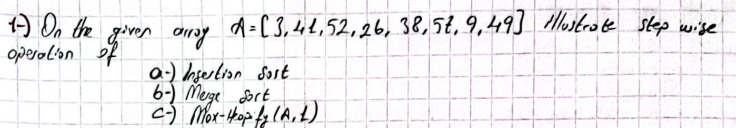 1-) On the given array A=[3,41,52,26,38,57,9,49] Illustrate step wise
operation of
a-) Insertion Sort
b-) Merge Sort
c-) Max-Heapify(A,1)